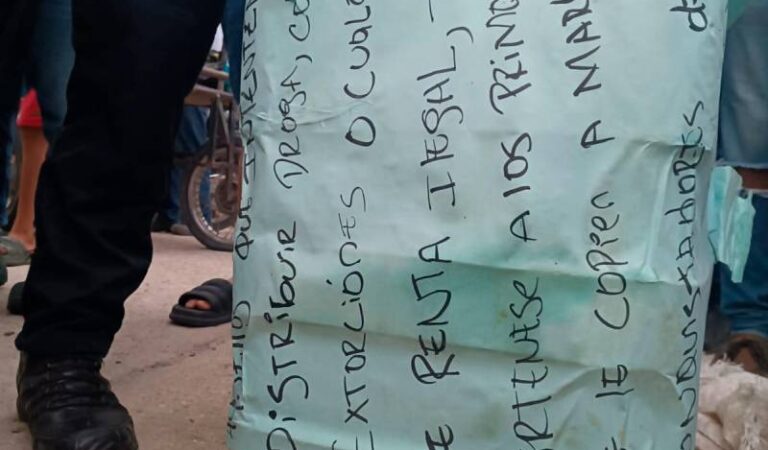 QUE INTENTEN
DISTRIBUIR DROGA, CO
EXTORCIÓNES O CUALQ
E RENTA ILEGAL,
RTENESE A LOS PRIMO
E LE COPIEN A MAR
ONQUISTADORES de